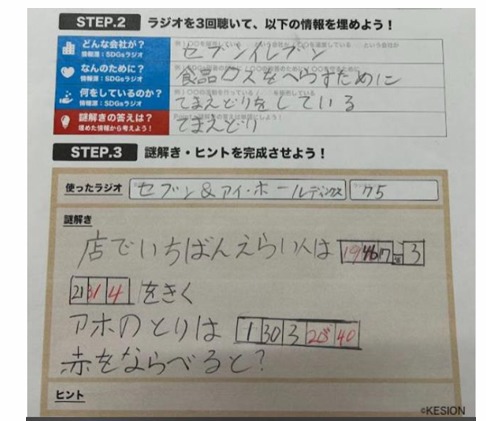 STEP.2 ラジオを3回聴いて、以下の情報を埋めよう!
どんな会社が?
情報源:SDGsラジオ
セブンイレブン
なんのために?
情報源:SDGsラジオ
食品ロスをへらすために
何をしているのか?
情報源:SDGsラジオ
てまえどりをしている
謎解きの答えは?
埋めた情報から考えよう!
てまえどり
STEP.3 謎解き・ヒントを完成させよう!
使ったラジオ セブン&アイ・ホールディングス 75
謎解き
店でいちばんえらい人は 3
21 31 4 をきく
アホのとりは 1 30 3 40
赤をならべると?
ヒント
©KESION